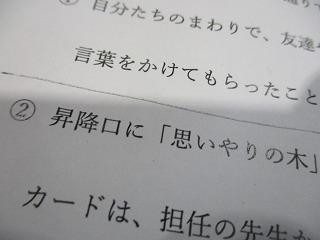 自分たちのまわりで、友達
言葉をかけてもらったこと
② 昇降口に「思いやりの木」
カードは、担任の先生か